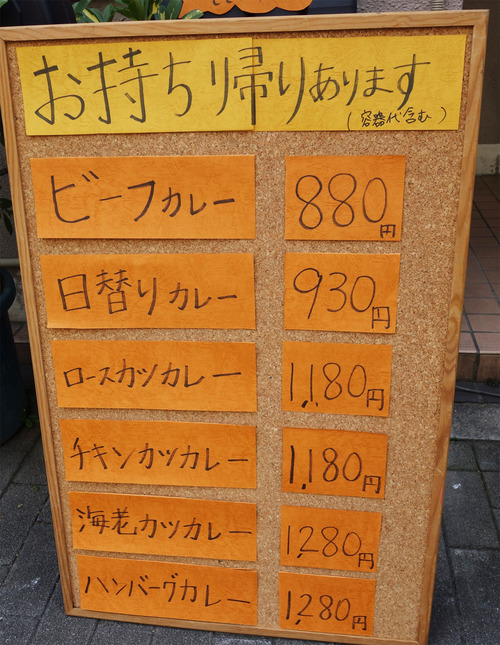 お持ち帰りあります
(容器代含む)
ビーフカレー 880円
日替りカレー 930円
ロースカツカレー 1,180円
チキンカツカレー 1,180円
海老カツカレー 1,280円
ハンバーグカレー 1,280円